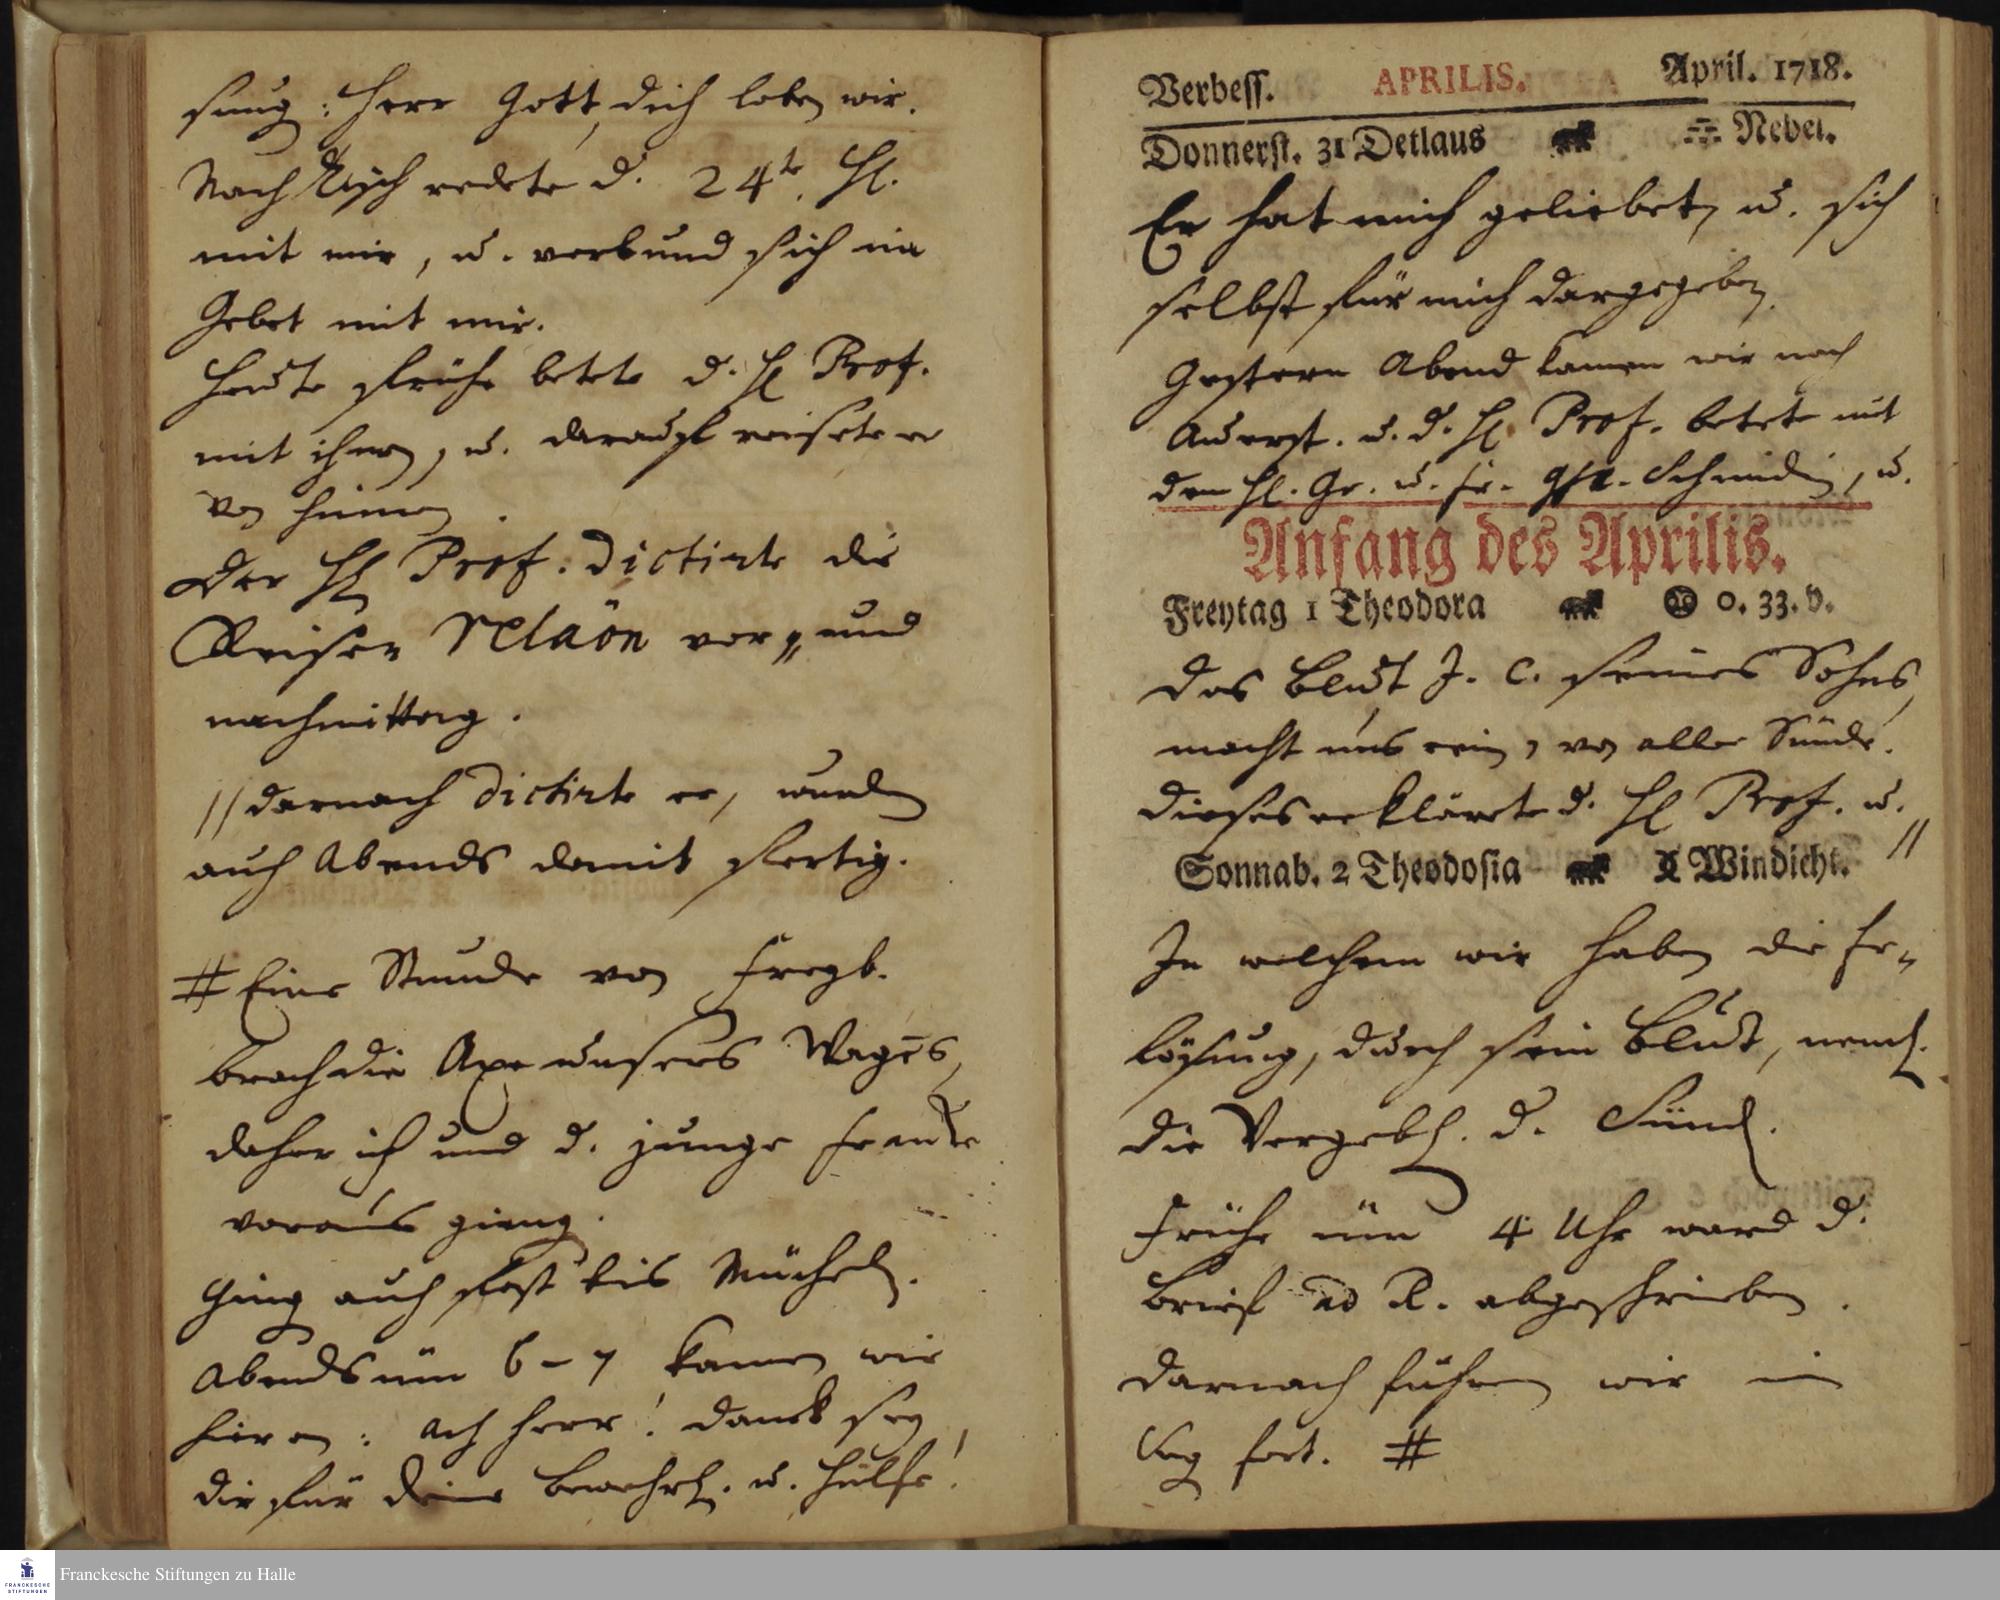 sung: Herr Gott, dich loben wir.
Nach Tisch redete d. 24te. H.
mit mir, u. verbund sich im
Gebet mit mir.
Heute frühe betete d. H Prof.
mit ihnen, u. darauf reisete er
von hinnen.
Der H Prof. dictirte die
Reise= relaõn vor= und
nachmittag.
// darnach dictirte er, wurden
auch Abends damit fertig.
# Eine Stunde von Freyb.
brach die Axe unsers Wagēs,
daher ich und d. junge Francke
voraus gieng.
Ging auch fast bis Mücheln.
Abends um 6–7 kamen wir
hier an: Ach Herr! danck sey
dir für deine bewahrh. u. Hülfe!
Verbess. APRILIS. April. 1718.
Donnerst. 31 Detlaus Nebel.
Er hat mich geliebet, u. sich
selbst für mich dargegeben.
Gestern Abend kamen wir nach
Auerst. u. d. H. Prof. betete mit
dem H. Gr. u. Fr. Schmidin, u.
Anfang des Aprilis.
Freytag 1 Theodora 0. 33. v.
Das Blut J. C. seines Sohns,
macht uns rein, von aller Sünde.
Dieses erklärete d. H Prof. u. //
Sonnab. 2 Theodosia Windicht.
In welchem wir haben die Er=
lösung, durch sein Blut, neml.
die Vergeb. d. Sünd.
Frühe um 4 Uhr ward d.
Brief ad R. abgeschrieben.
Darnach fuhren wir im
fort. #
Franckesche Stiftungen zu Halle
FRANCKESCHE
STIFTUNGEN